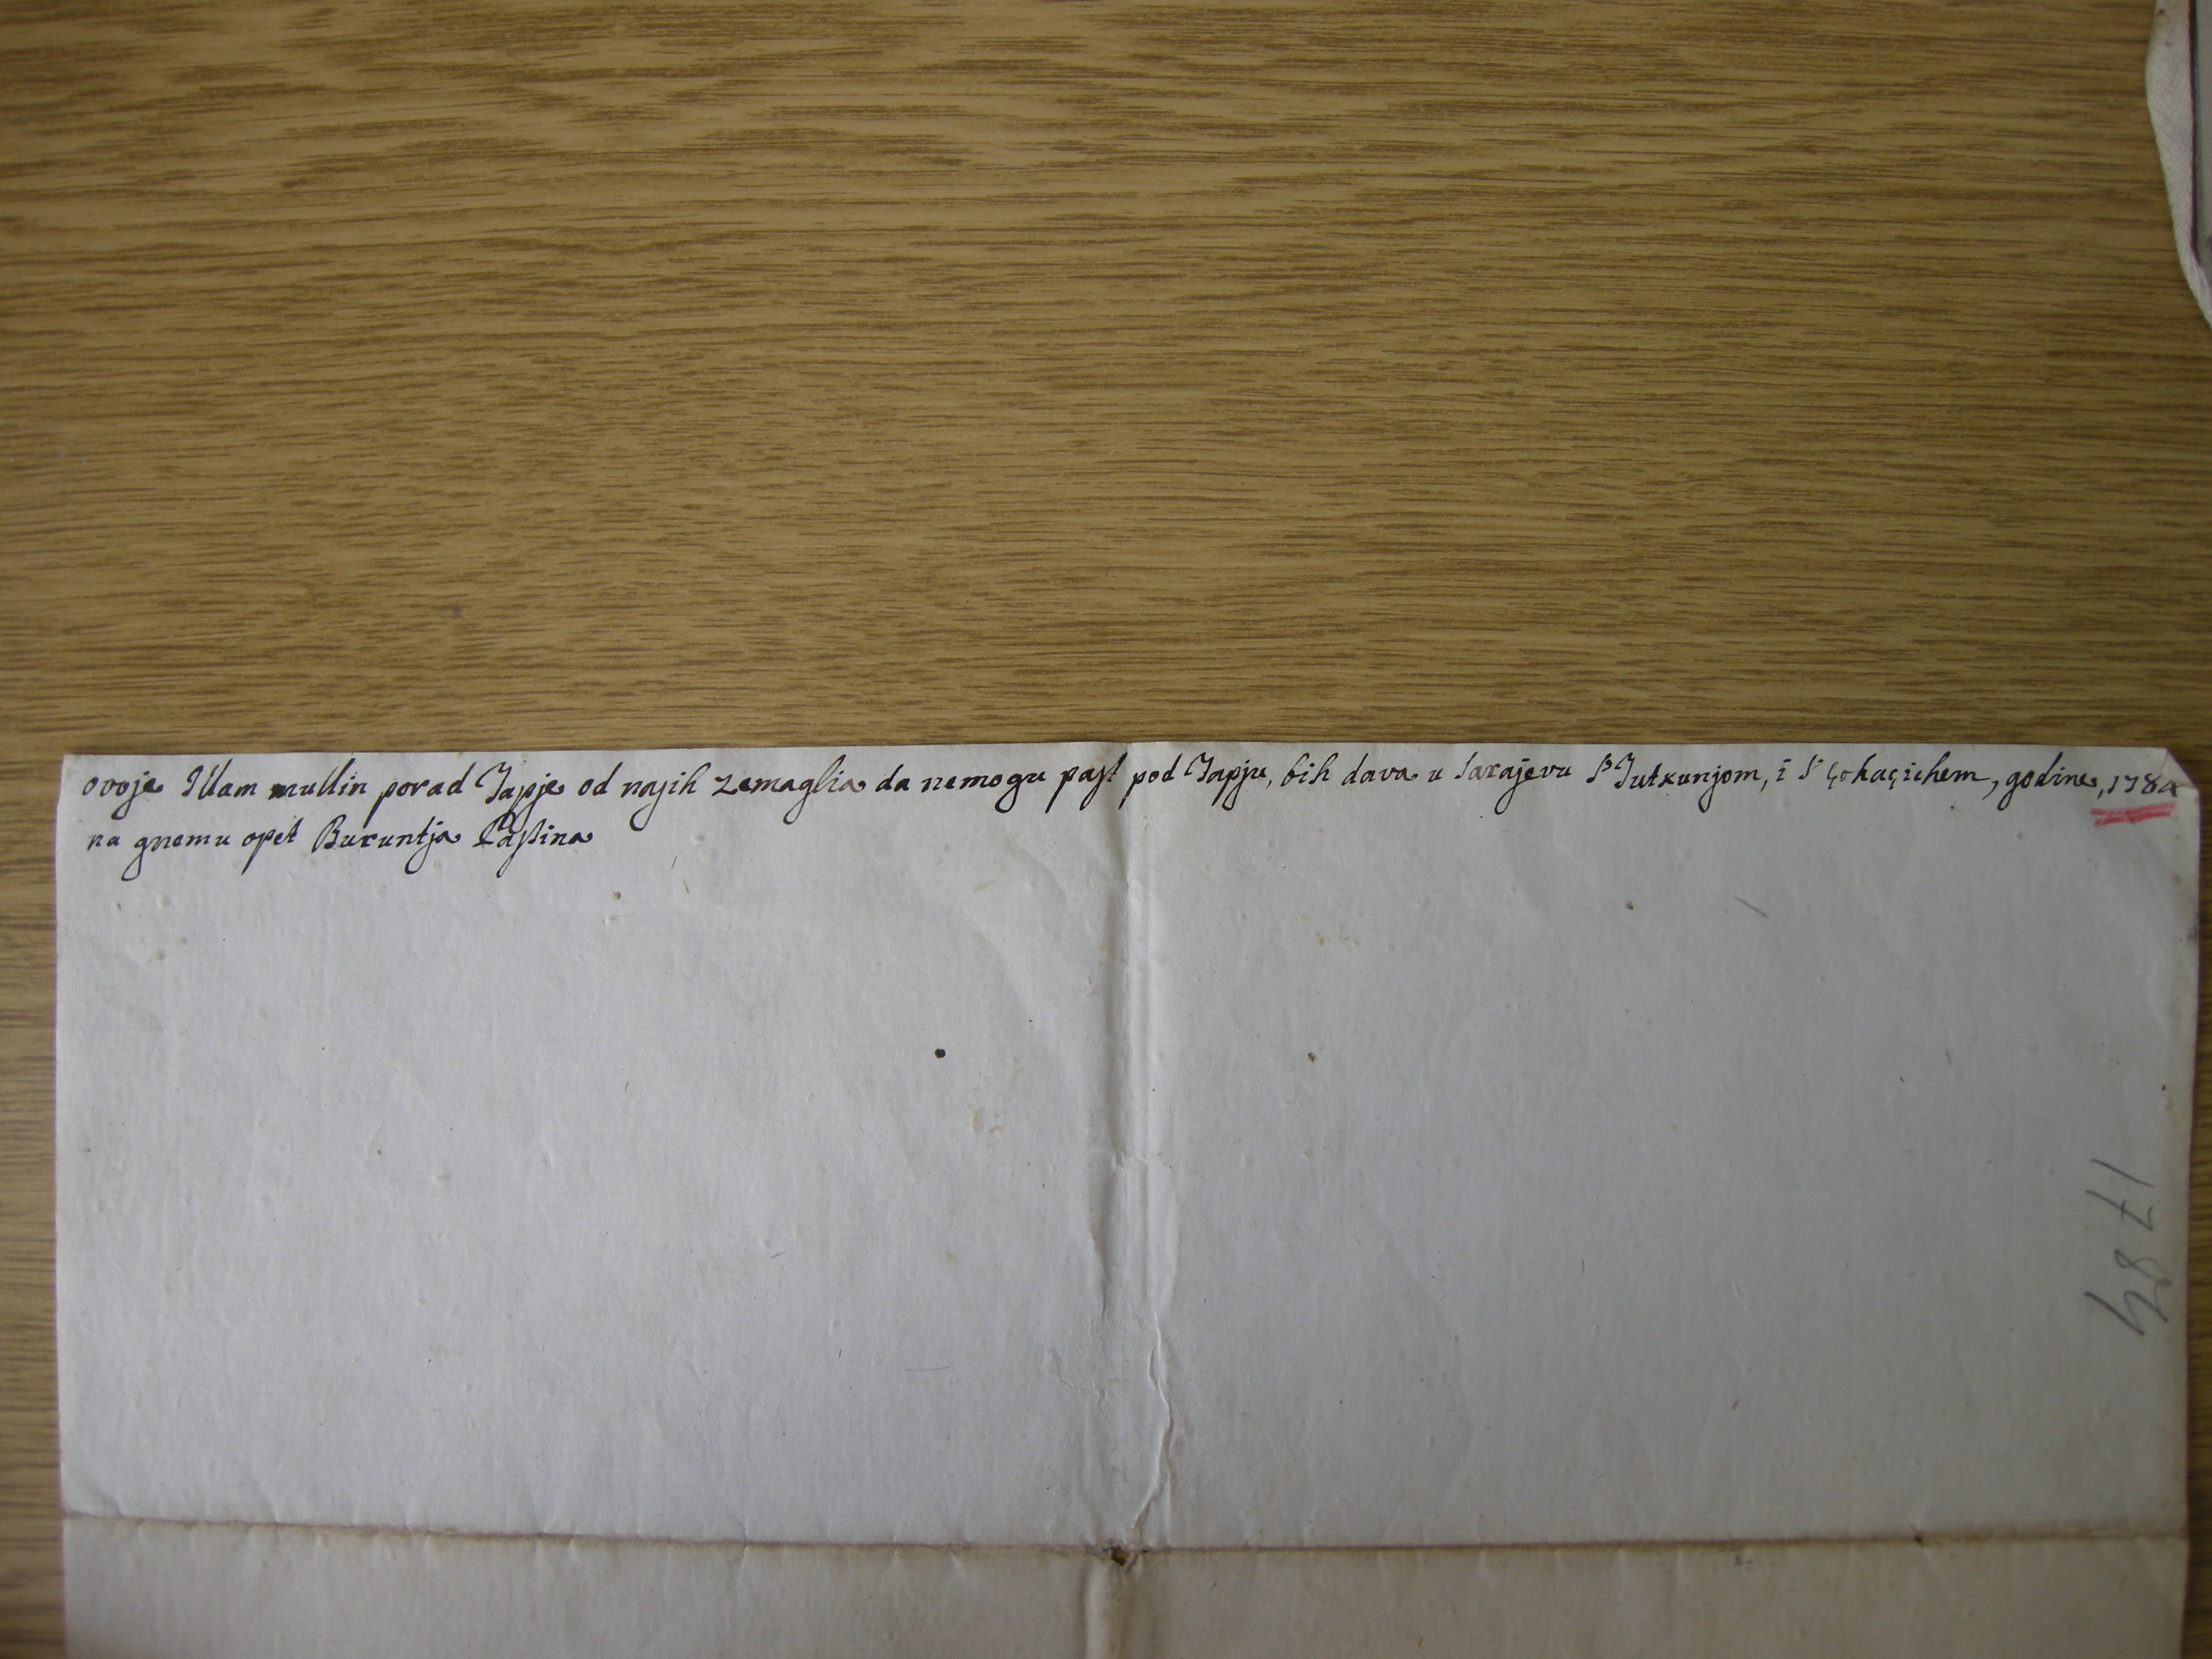 ovoje Illam mullin porad Tapje od nasih zemaglia da nemogu past pod Tapju, bih dava u Sarajevu S Tutkunjom, i S çohaçichem, godine, 1784
na gnemu opet Buruntja Passina
1784